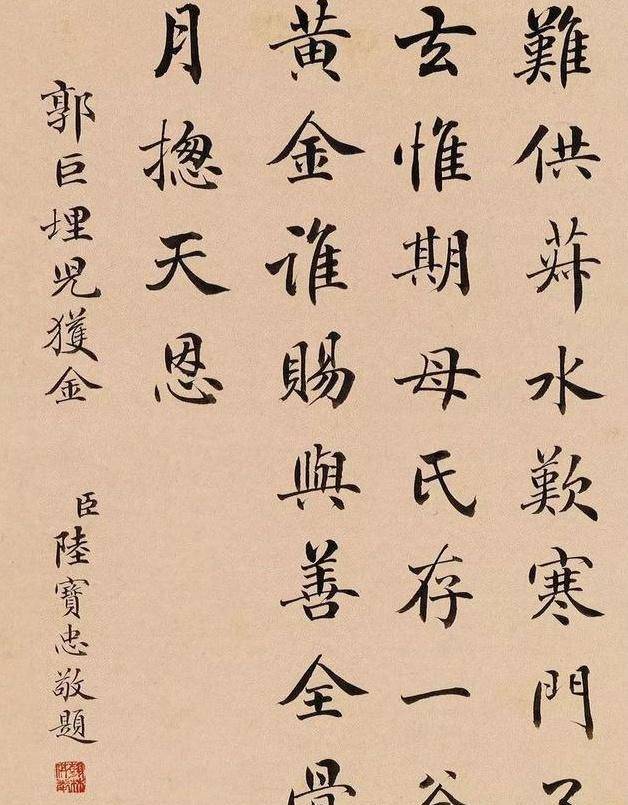 難供菽水歎寒門
玄惟期母氏存一
黄金誰賜與善全
月揔天恩
郭巨埋児獲金
臣陸寶忠敬題